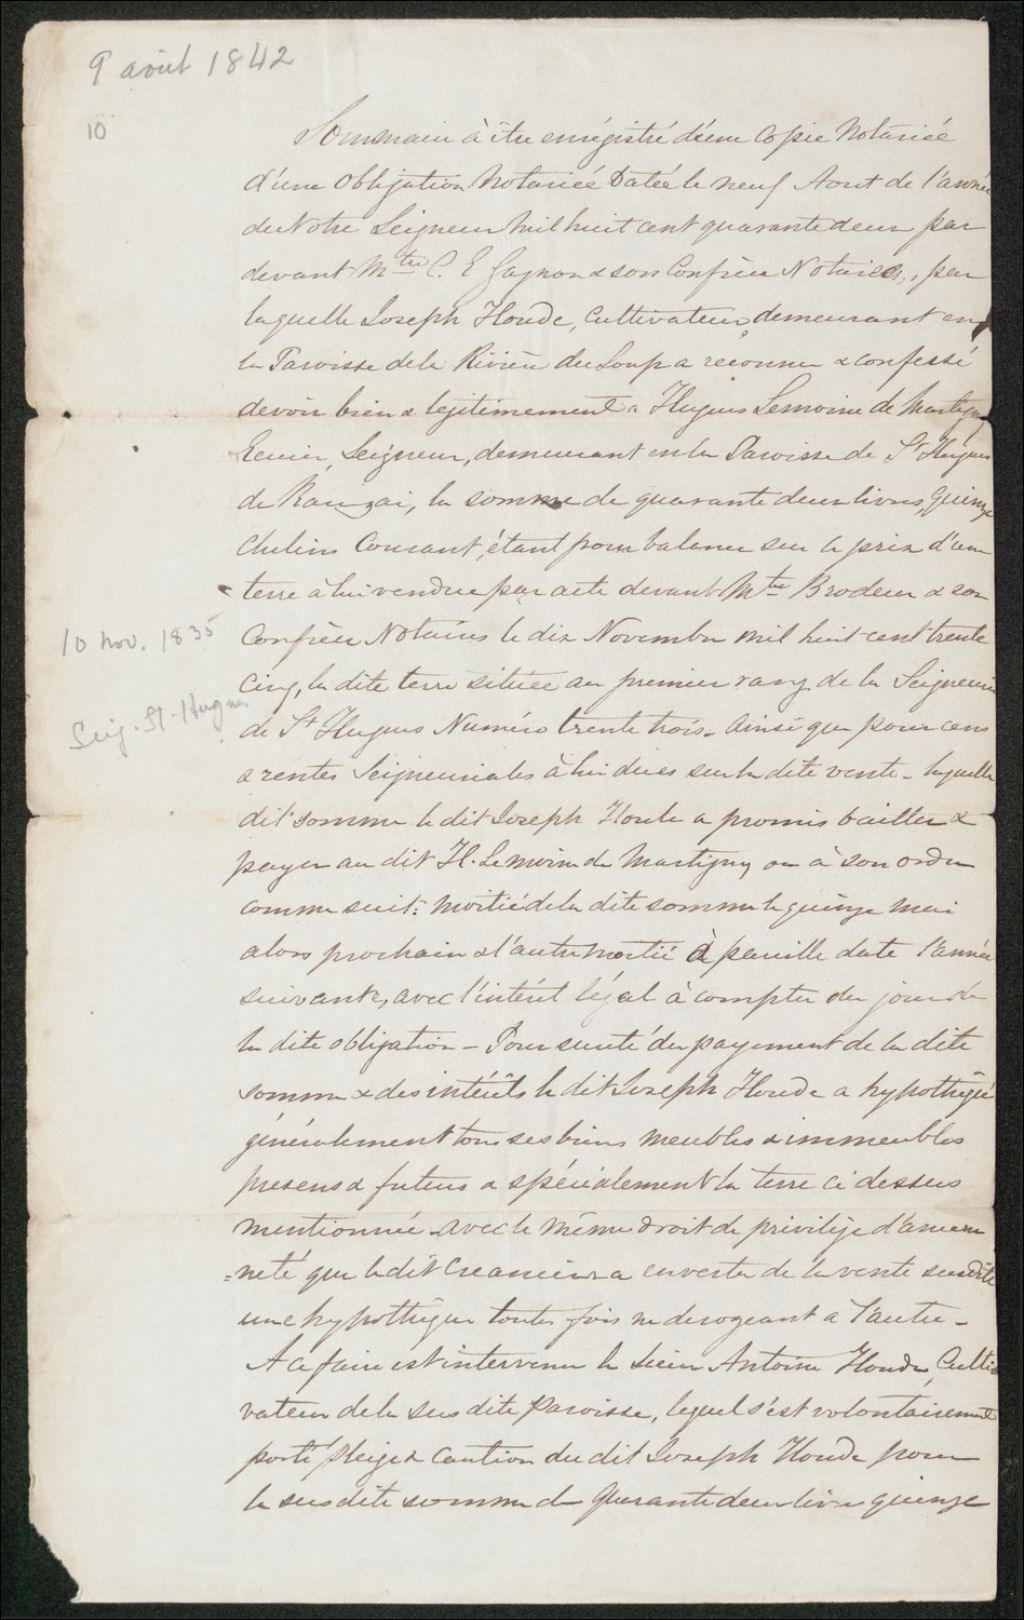 9 août 1842
10
Sommaire à être enrégistré d'une Copie Notariée
d'une Obligation Notariée Datée le neuf Aout de l'année
de Notre Seigneur mil huit cent quarante deux par
devant Mtre C. E Gagnon & son Confrère Notaires, par
laquelle Joseph Houde, Cultivateur, demeurant en
la Paroisse de la Rivière du Loup a reconnu & confessé
devoir bien & legitimement a Hugues Lemoine de Martigny
Ecuier, Seigneur, demeurant en la Paroisse de St Hugues
de Ramzai, la somme de quarante deux livres, quinze
Chelins Courant, étant pour balance sur le prix d'une
terre à lui vendue par acte devant Mtre Brodeur & son
Confrère Notaires le dix Novembre mil huit cent trente
10 nov. 1835
cinq, la dite terre située au premier rang de la Seigneurie
Seig. St-Hugues
de St Hugues Numéro trente trois. Ainsi que pour cens
& rentes Seigneuriales à lui dues sur la dite vente - laquelle
dit somme le dit Joseph Houde a promis bailler &
payer au dit H. Lemoine de Martigny ou à son ordre
comme suit: moitié de la dite somme le quinze mai
alors prochain & l'autre moitié à pareille date l'année
suivante, avec l'intérêt légal à compter du jour de
la dite obligation - Pour sureté du payement de la dite
somme & des intérêts le dit Joseph Houde a hypothéqué
généralement tous ses biens meubles & immeubles
presens & futurs & spécialement la terre ci dessus
mentionnée avec le même droit de privilège d'ancien
=neté que le dit Creancier a en vertu de la vente susdite
une hypothèque toutes fois ne derogeant a l'autre -
A ce faire est intervenu le sieur Antoine Houde, Culti
vateur de la susdite paroisse, lequel s'est volontairement
porté pleige & caution du dit Joseph Houde pour
la susdite somme de quarante deux livres quinze